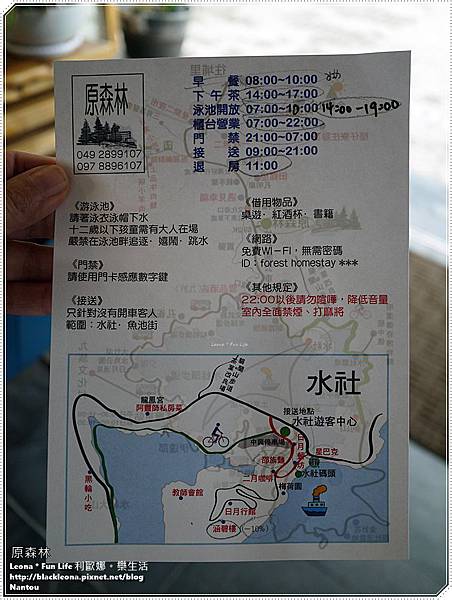 往埔里
原森林
049 2899107
097 8896107
早 餐 08:00~10:00
下 午 茶 14:00~17:00
泳池開放 07:00~10:00 14:00~19:00
櫃台營業 07:00~22:00
門 禁 21:00~07:00
接 送 09:00~21:00
退 房 11:00
《游泳池》
請著泳衣泳帽下水
十二歲以下孩童需有大人在場
嚴禁在泳池畔追逐．嬉鬧．跳水
《門禁》
請使用門卡感應數字鍵
《接送》
只針對沒有開車客人
範圍：水社．魚池街
《借用物品》
桌遊．紅酒杯．書籍
《網路》
免費WI-FI，無需密碼
ID：forest homestay ***
《其他規定》
22:00以後請勿喧嘩，降低音量
室內全面禁煙、打麻將
Leona * Fun Life
水社
龍鳳宮
阿豐師私房菜
接送地點
水社遊客中心
中興停車場
日月餐坊
星巴克
邵族麵
水社碼頭
二月咖啡
梅荷園
黑輪小吃
教師會館
日月行館
涵碧樓 (-10%)
原森林
Leona * Fun Life 利歐娜。樂生活
http://blackleona.pixnet.net/blog
Nantou